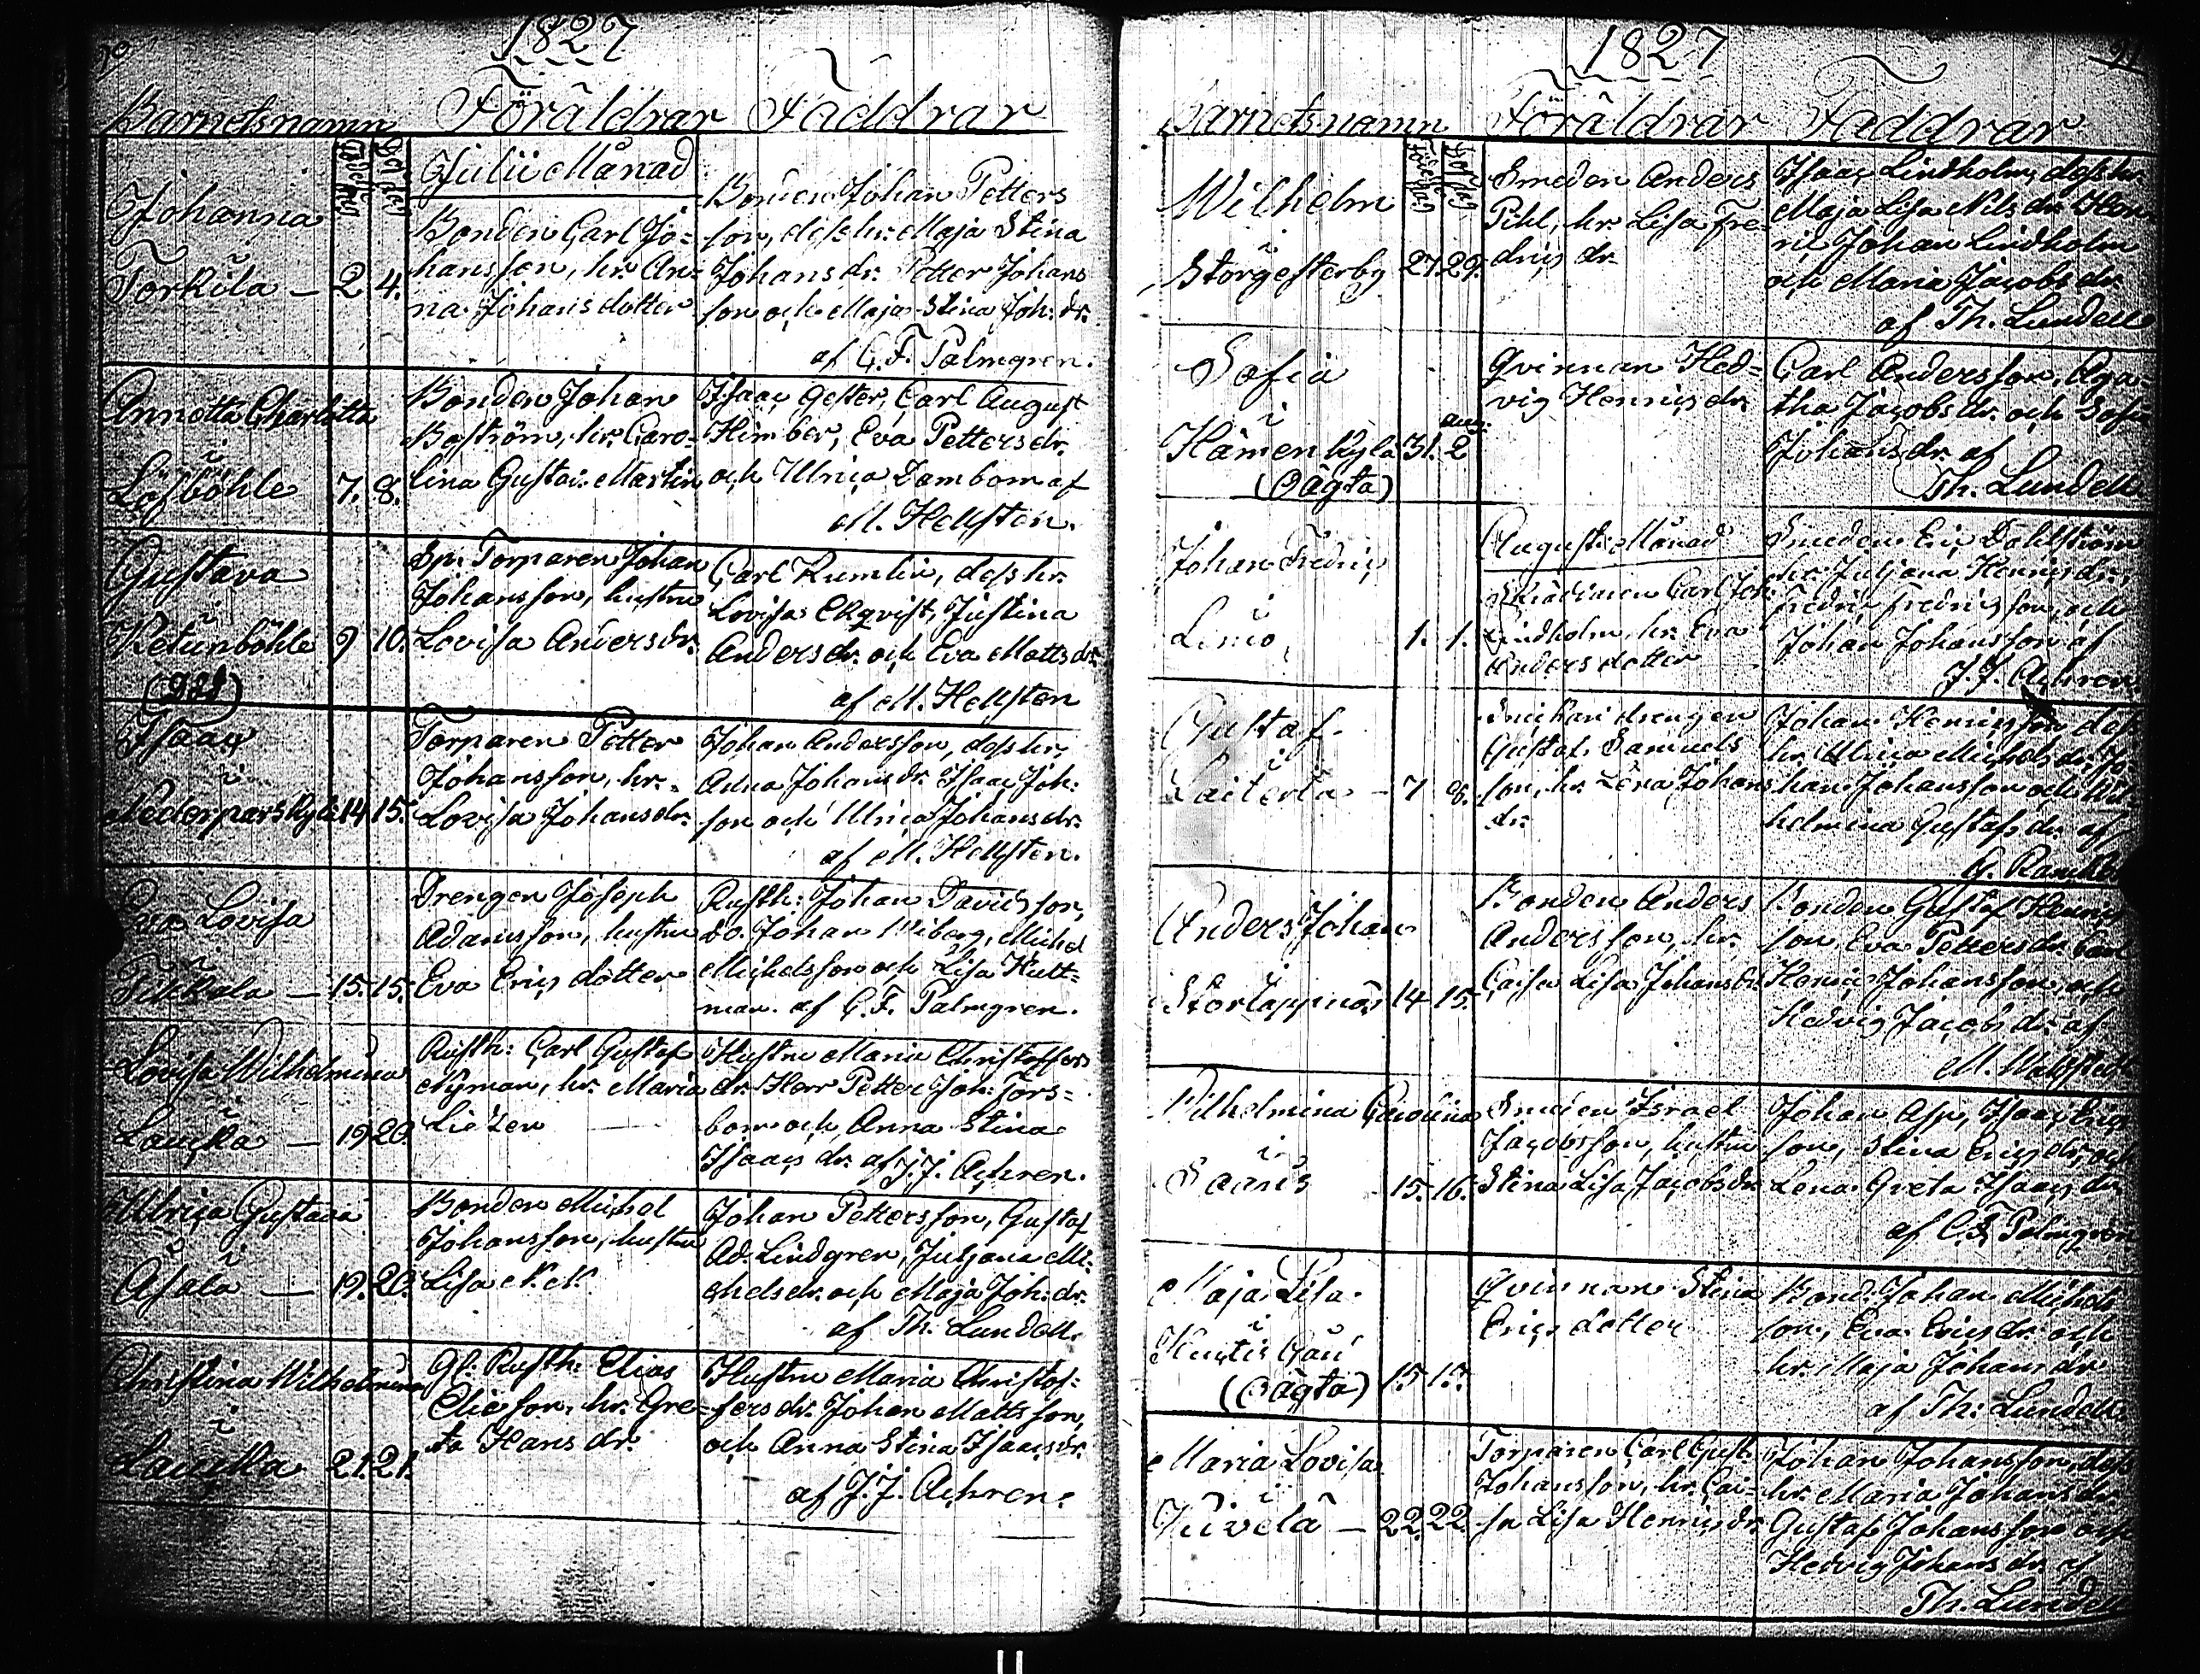 90
1827
Barnetsnamn Föräldrar Faddrar
Födelsed. Dopdag
Julii Månad
Johanna
i
Torkila — 2 4.
Bonden Carl Jo=
hansson, hr. An=
na Johansdotter
Bonden Johan Petters
son, dess hr. Maja Stina
Johansdr. Petter Johans
son och Maja Stina Joh: dr.
af C. F. Palmgren.
Annetta Charlotta
i
Löfböhle 7. 8.
Bonden Johan
Boström, hr. Caro=
lina Gustai. Martin
Isaac Gester, Carl August
Himber, Eva Pettersdr.
och Ulrica Dambom af
M. Hellsten.
Gustava
i
Ketunböhle 9 10.
Sp: Torparen Johan
Johansson, hustru
Lovisa Andersdr.
Carl Rumlin, dess hr.
Lovisa Ekqvist, Justina
Andersdr. och Eva Mattsdr.
af M. Hellsten
Isaac
i
Nederparskyla 14 15.
Torparen Petter
Johansson, hr.
Lovisa Johansdr.
Johan Andersson, dess hr,
Anna Johansdr. Isaac Joh:
son och Ulrica Johansdr.
af M. Hellsten.
Eva Lovisa
i
Tikkala — 15. 15.
Drengen Joseph
Adamsson, hustru
Eva Ericsdotter
Rusth: Johan Davidsson,
do. Johan Wiberg, Michel
Michelsson och Lisa Hult=
man. af C. F. Palmgren.
Lovisa Wilhelmina
i
Laucka — 19 20.
Rusth: Carl Gustaf
Nyman, hr. Maria
Liezen
Hustru Maria Christoffers
dr. Herr Petter Joh: Fors=
bom och Anna Stina
Isaacsdr. af J. J. Achren.
Ulrica Gustava
i
Asala — 19. 20.
Bonden Michel
Johansson, hustru
Lisa N. N.
Johan Pettersson, Gustaf
Ad. Lindgren, Juljana Mi=
chelsdr. och Maja Joh: dr.
af Th: Lundell.
Christina Wilhelmina
i
Laucka 21. 21.
Gl. Rusth: Elias
Eliesson, hr. Gre=
ta Hansdr.
Hustru Maria Christof=
fersdr. Johan Mattsson,
och Anna Stina Isaacsdr.
af J. J. Achren.
1827
Barnetsnamn Föräldrar Faddrar
Wilhelm
i
Storgesterby 27. 29.
Smeden Anders
Pihl, hr. Lisa Fre=
drics dr.
Isaac Lindholm, dess hr.
Maja Lisa Nils dr. Hen=
ric Johan Lindholm
och Maria Jacobsdr.
af Th. Lundell
Sofia
i
Hämenkyla 31. aug. 2
(Oägta)
Qvinnan Hed=
vig Henricsdr.
Carl Andersson, Aga=
tha Jacobsdr. och Sofia
Johansdr. af
Th. Lundell
Augusti Månad
Johan Fredric
i
Lemo, 1. 1.
Carl Joh:
Lindholm, hr. Eva
Andersdotter
Smeden Eric Dahlström
hr. Juljana Henricsdr.,
Fredric Fredricsson, och
Johan Johansson af
J. J. Achren.
Gustaf
i
7 8.
drengen
Gustaf Samuels
son, hr. Lena Johans
dr.
Johan Henricsson dess
hr. Ulrica Michelsdr. Jo
han Johansson och Wil=
helmina Gustafsdr. af
Anders Johan
i
Storlappnäs 14 15.
Bonden Anders
Andersson, hr.
Caisa Lisa Johansdr.
Bonden Gustaf Henrics
son, Eva Pettersdr.
Henric Johansson, och
Hedvig Jacobsdr. af
Wilhelmina Carolina
i
Saaris 15. 16.
Smeden Israel
Jacobsson, hustru
Stina Lisa Jacobsdr.
Johan Asp, Isaac Erics
son, Stina Ericsdr. och
Lena Greta Isaacsdr.
af C. F. Palmgren
Maja Lisa
i
(Oägta) 15 17.
Qvinnan Stina
Ericsdotter
Bond. Johan Michels
son, Eva Ericsdr. och
hr. Maja Johansdr.
af Th: Lundell
Maria Lovisa
i
Juvela — 22. 22.
Torparen Carl Gust:
Johansson, hr. Cai=
sa Lisa Henricsdr.
Johan Johansson, dess
hr. Maria Johansdr.
Gustaf Johansson och
Hedvig Johansdr. af
Th. Lundell